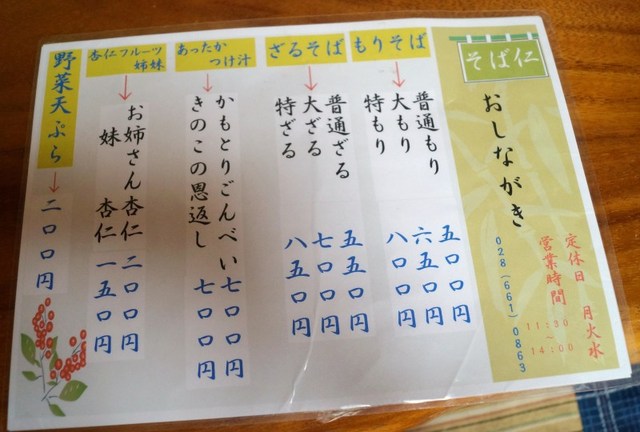 そば仁
おしながき
定休日 月火水
営業時間 11:30～14:00
028(661)0863
もりそば
普通もり 五〇〇円
大もり 六五〇円
特もり 八〇〇円
ざるそば
普通ざる 五五〇円
大ざる 七〇〇円
特ざる 八五〇円
あったか
つけ汁
かもとりごんべい 七〇〇円
きのこの恩返し 七〇〇円
杏仁フルーツ
姉妹
お姉さん杏仁 二〇〇円
妹 杏仁 一五〇円
野菜天ぷら
二〇〇円